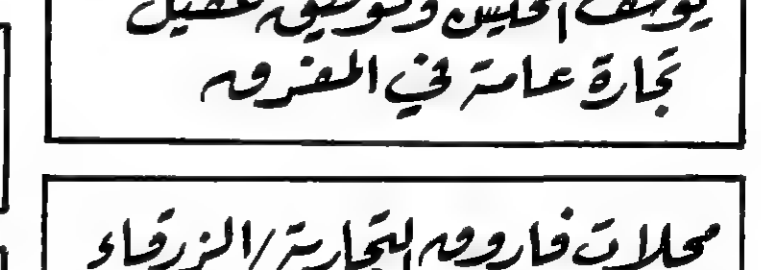 يوسف الحليس وتوفيق عقيل
تجارة عامة في المفرق
محلات فاروق التجارية/الزرقاء